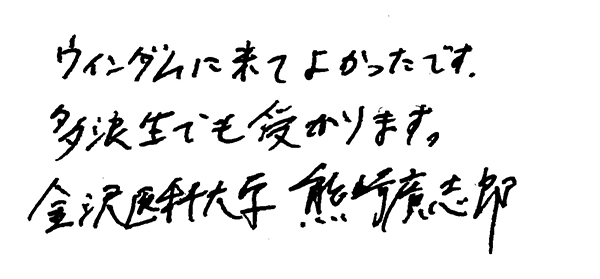 ウインダムに来てよかったです.
多浪生でも受かります。
金沢医科大学 熊崎廣志郎